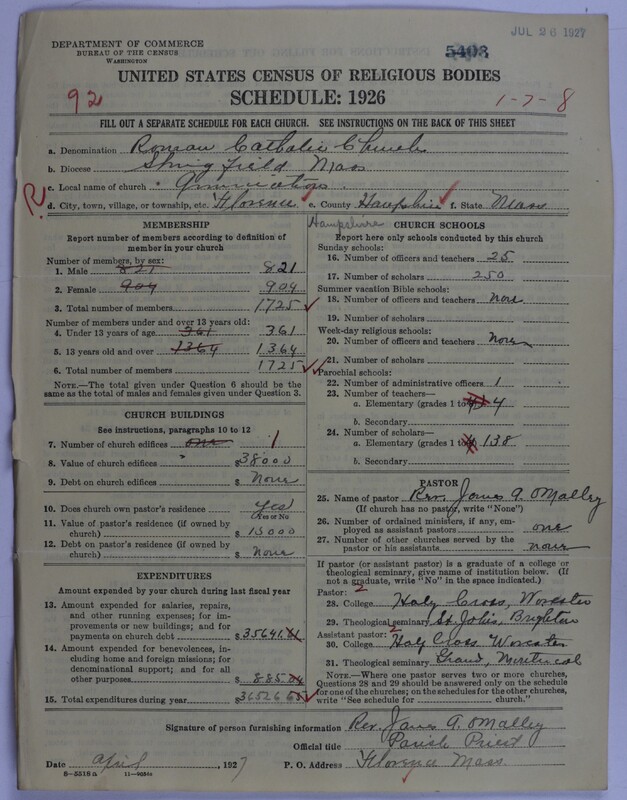 JUL 26 1927
DEPARTMENT OF COMMERCE
BUREAU OF THE CENSUS
WASHINGTON
5403
UNITED STATES CENSUS OF RELIGIOUS BODIES
SCHEDULE: 1926
92
1-7-8
FILL OUT A SEPARATE SCHEDULE FOR EACH CHURCH. SEE INSTRUCTIONS ON THE BACK OF THIS SHEET
a. Denomination Roman Catholic Church
b. Diocese Springfield Mass
c. Local name of church Annunciation
d. City, town, village, or township, etc. Florence e. County Hampshire f. State Mass
Hampshire
MEMBERSHIP
Report number of members according to definition of
member in your church
Number of members, by sex:
1. Male 821 821
2. Female 904 904
3. Total number of members 1725
Number of members under and over 13 years old:
4. Under 13 years of age 361 361
5. 13 years old and over 1364 1364
6. Total number of members 1725
NOTE.—The total given under Question 6 should be
same as the total of males and females given under Question 3.
CHURCH BUILDINGS
See instructions, paragraphs 10 to 12
7. Number of church edifices one 1
8. Value of church edifices $38000
9. Debt on church edifices $ None
10. Does church own pastor's residence Yes
Yes or No
11. Value of pastor's residence (if owned by
church) $15000
12. Debt on pastor's residence (if owned by
church) $ None
EXPENDITURES
Amount expended by your church during last fiscal year
13. Amount expended for salaries, repairs,
and other running expenses; for im-
provements or new buildings; and for
payments on church debt $35641.
14. Amount expended for benevolences, in-
cluding home and foreign missions; for
denominational support; and for all
other purposes $885.
15. Total expenditures during year $36526
CHURCH SCHOOLS
Report here only schools conducted by this church
Sunday schools:
16. Number of officers and teachers 25
17. Number of scholars 250
Summer vacation Bible schools:
18. Number of officers and teachers None
19. Number of scholars
Week-day religious schools:
20. Number of officers and teachers None
21. Number of scholars
Parochial schools:
22. Number of administrative officers 1
23. Number of teachers—
a. Elementary (grades 1 to 4
b. Secondary
24. Number of scholars—
a. Elementary (grades 1 to 138
b. Secondary
PASTOR
25. Name of pastor Rev. James A. O'Malley
(If church has no pastor, write "None")
26. Number of ordained ministers, if any, em-
ployed as assistant pastors one
27. Number of other churches served by the
pastor or his assistants none
If pastor (or assistant pastor) is a graduate of a college or
theological seminary, give name of institution below. (If
not a graduate, write "No" in the space indicated.)
Pastor: 2
28. College Holy Cross, Worcester
29. Theological seminary St Johns, Brighton
Assistant pastor: 2
30. College Holy Cross Worcester
31. Theological seminary Grand, Montreal
NOTE.—Where one pastor serves two or more churches,
Questions 28 and 29 should be answered only on the schedule
for one of the churches; on the schedules for the other churches,
write "See schedule for church."
Signature of person furnishing information Rev. James A. O'Malley
Official title Parish Priest
Date April, 1927 P. O. Address Florence Mass.
8-5518a 11-9054